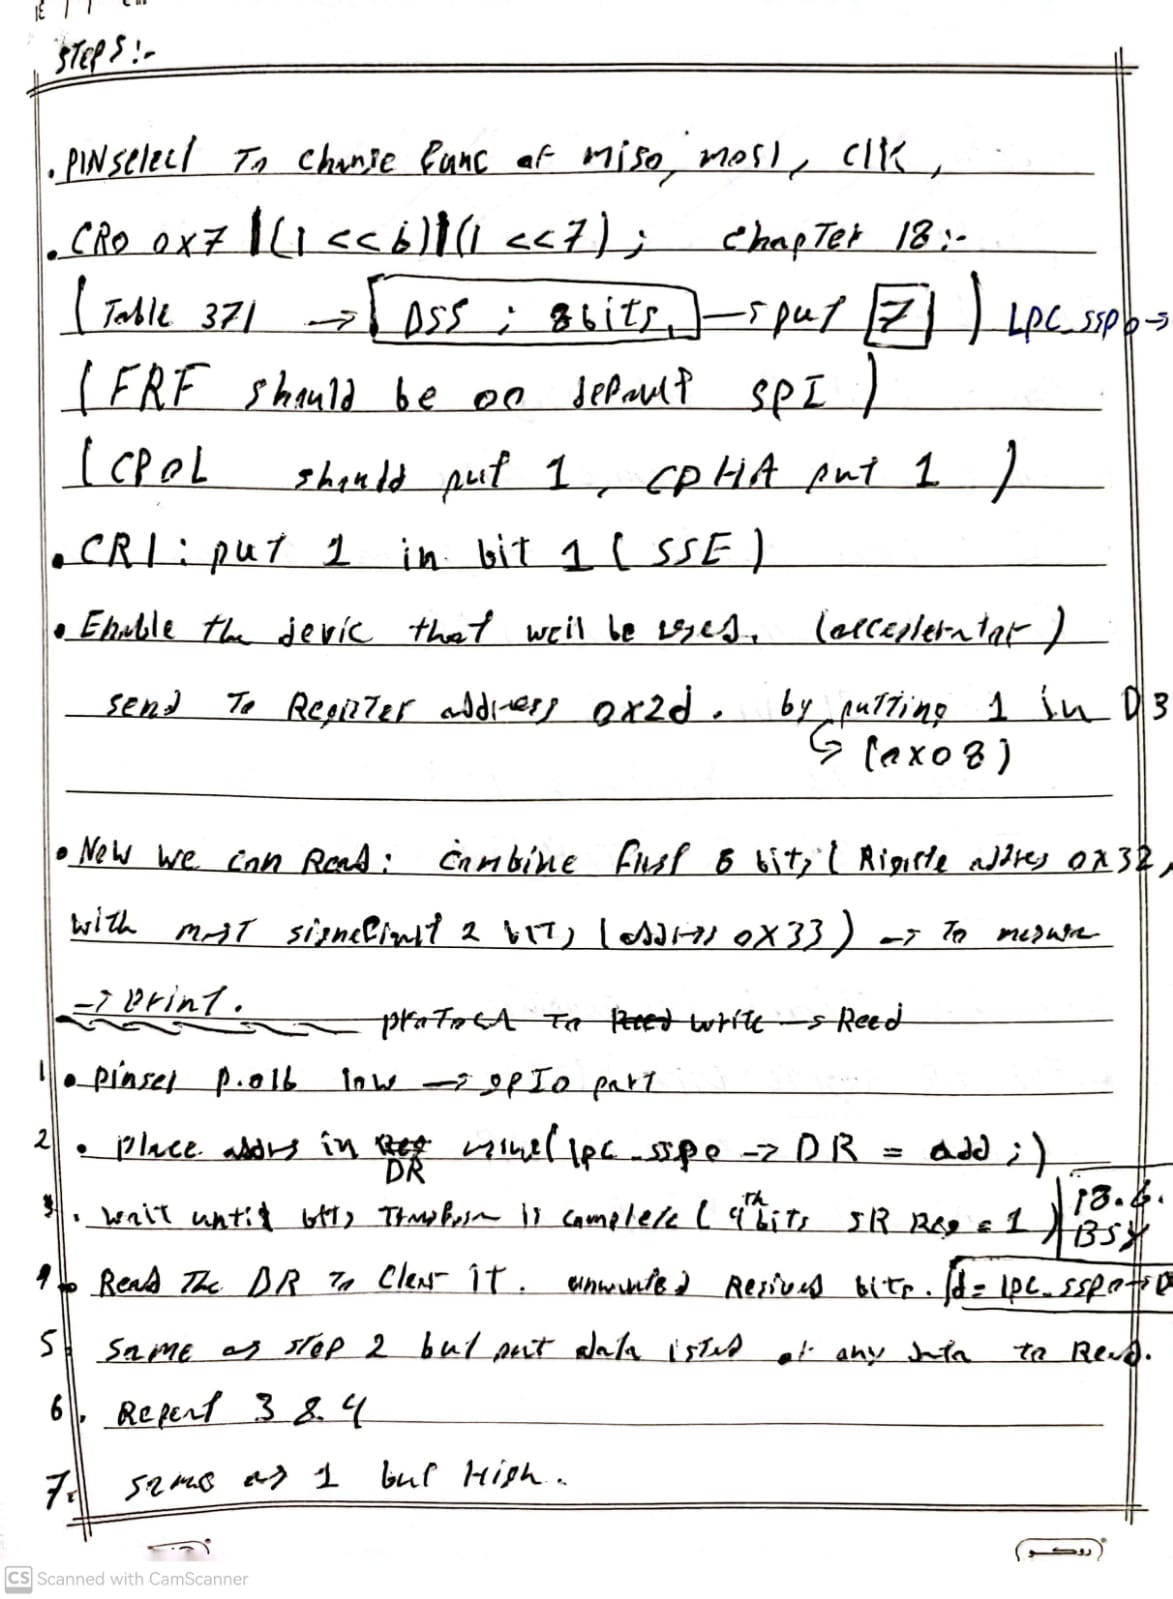 STEPS:-
. PINselect To Change func of miso, mosi, clk,
. CR0 0x7 |(1 <<6)|(1 <<7); chapTer 18:-
( Table 371 → DSS ; 8bits, → put 7 ) LPC_SSP0→
( FRF should be 00 default SPI )
( CPOL should put 1, CPHA put 1 )
. CR1: put 1 in bit 1 ( SSE )
. Enable the devic that weil be uses.
send To RegisTer address 0x2d. by putting 1 in D3
↳ (0x08)
. New we can Read: combine first 8 bits ( address 0x32,
with most 2 bits (address 0X33) → To
→ print.
To Reed write → Reed
1 . pinsel p.016 low → GPIO part
2 . place addrs in Reg value( lpc_ssp0 -> DR = add ;)
DR
3 . wait until is complete ( 4th bits SR Reg = 1 ) 18.6.
BSY
4 . Read The DR To Clear it. unwanted bits. d= lpc_ssp0->D
5 same as step 2 but put data any data to Read.
6 . Repeat 3 & 4
7. same as 1 but High.
CS Scanned with CamScanner